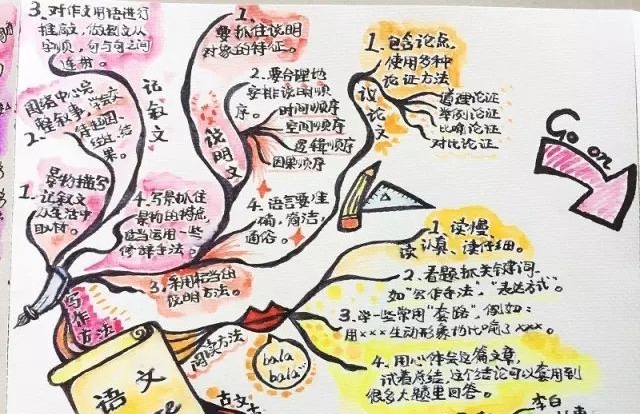 3、对作文用语进行
推敲,做到文从
字顺,句与句之间
连贯。
记叙文
围绕中心完
整叙事,学会交
待起因、
经过、结
果。
景物描写
1、记叙文
从生活中
取材。
4、写景抓住
景物的特点,
适当运用一些
修辞手法。
写作方法
1、
要抓住说明
对象的特征。
2、要合理地
安排说明顺
序。
时间顺序
空间顺序
逻辑顺序
因果顺序
说明文
4、语言要准
确,简洁,
通俗。
3、采用恰当的
说明方法。
1、包含论点,
使用多种
论证方法
议论文
道理论证
举例论证
比喻论证
对比论证
Go on
阅读方法
bala
bala
1、读慢、
读认真、读仔细。
2、看题抓关键词
如“写作手法”,“表达方式”。
3、举一些常用“套路”,例如:
用×××生动形象的比喻了×××。
4、用心体会这篇文章,
试着总结,这个结论可以套用到
很多大题里回答。
语文
李白